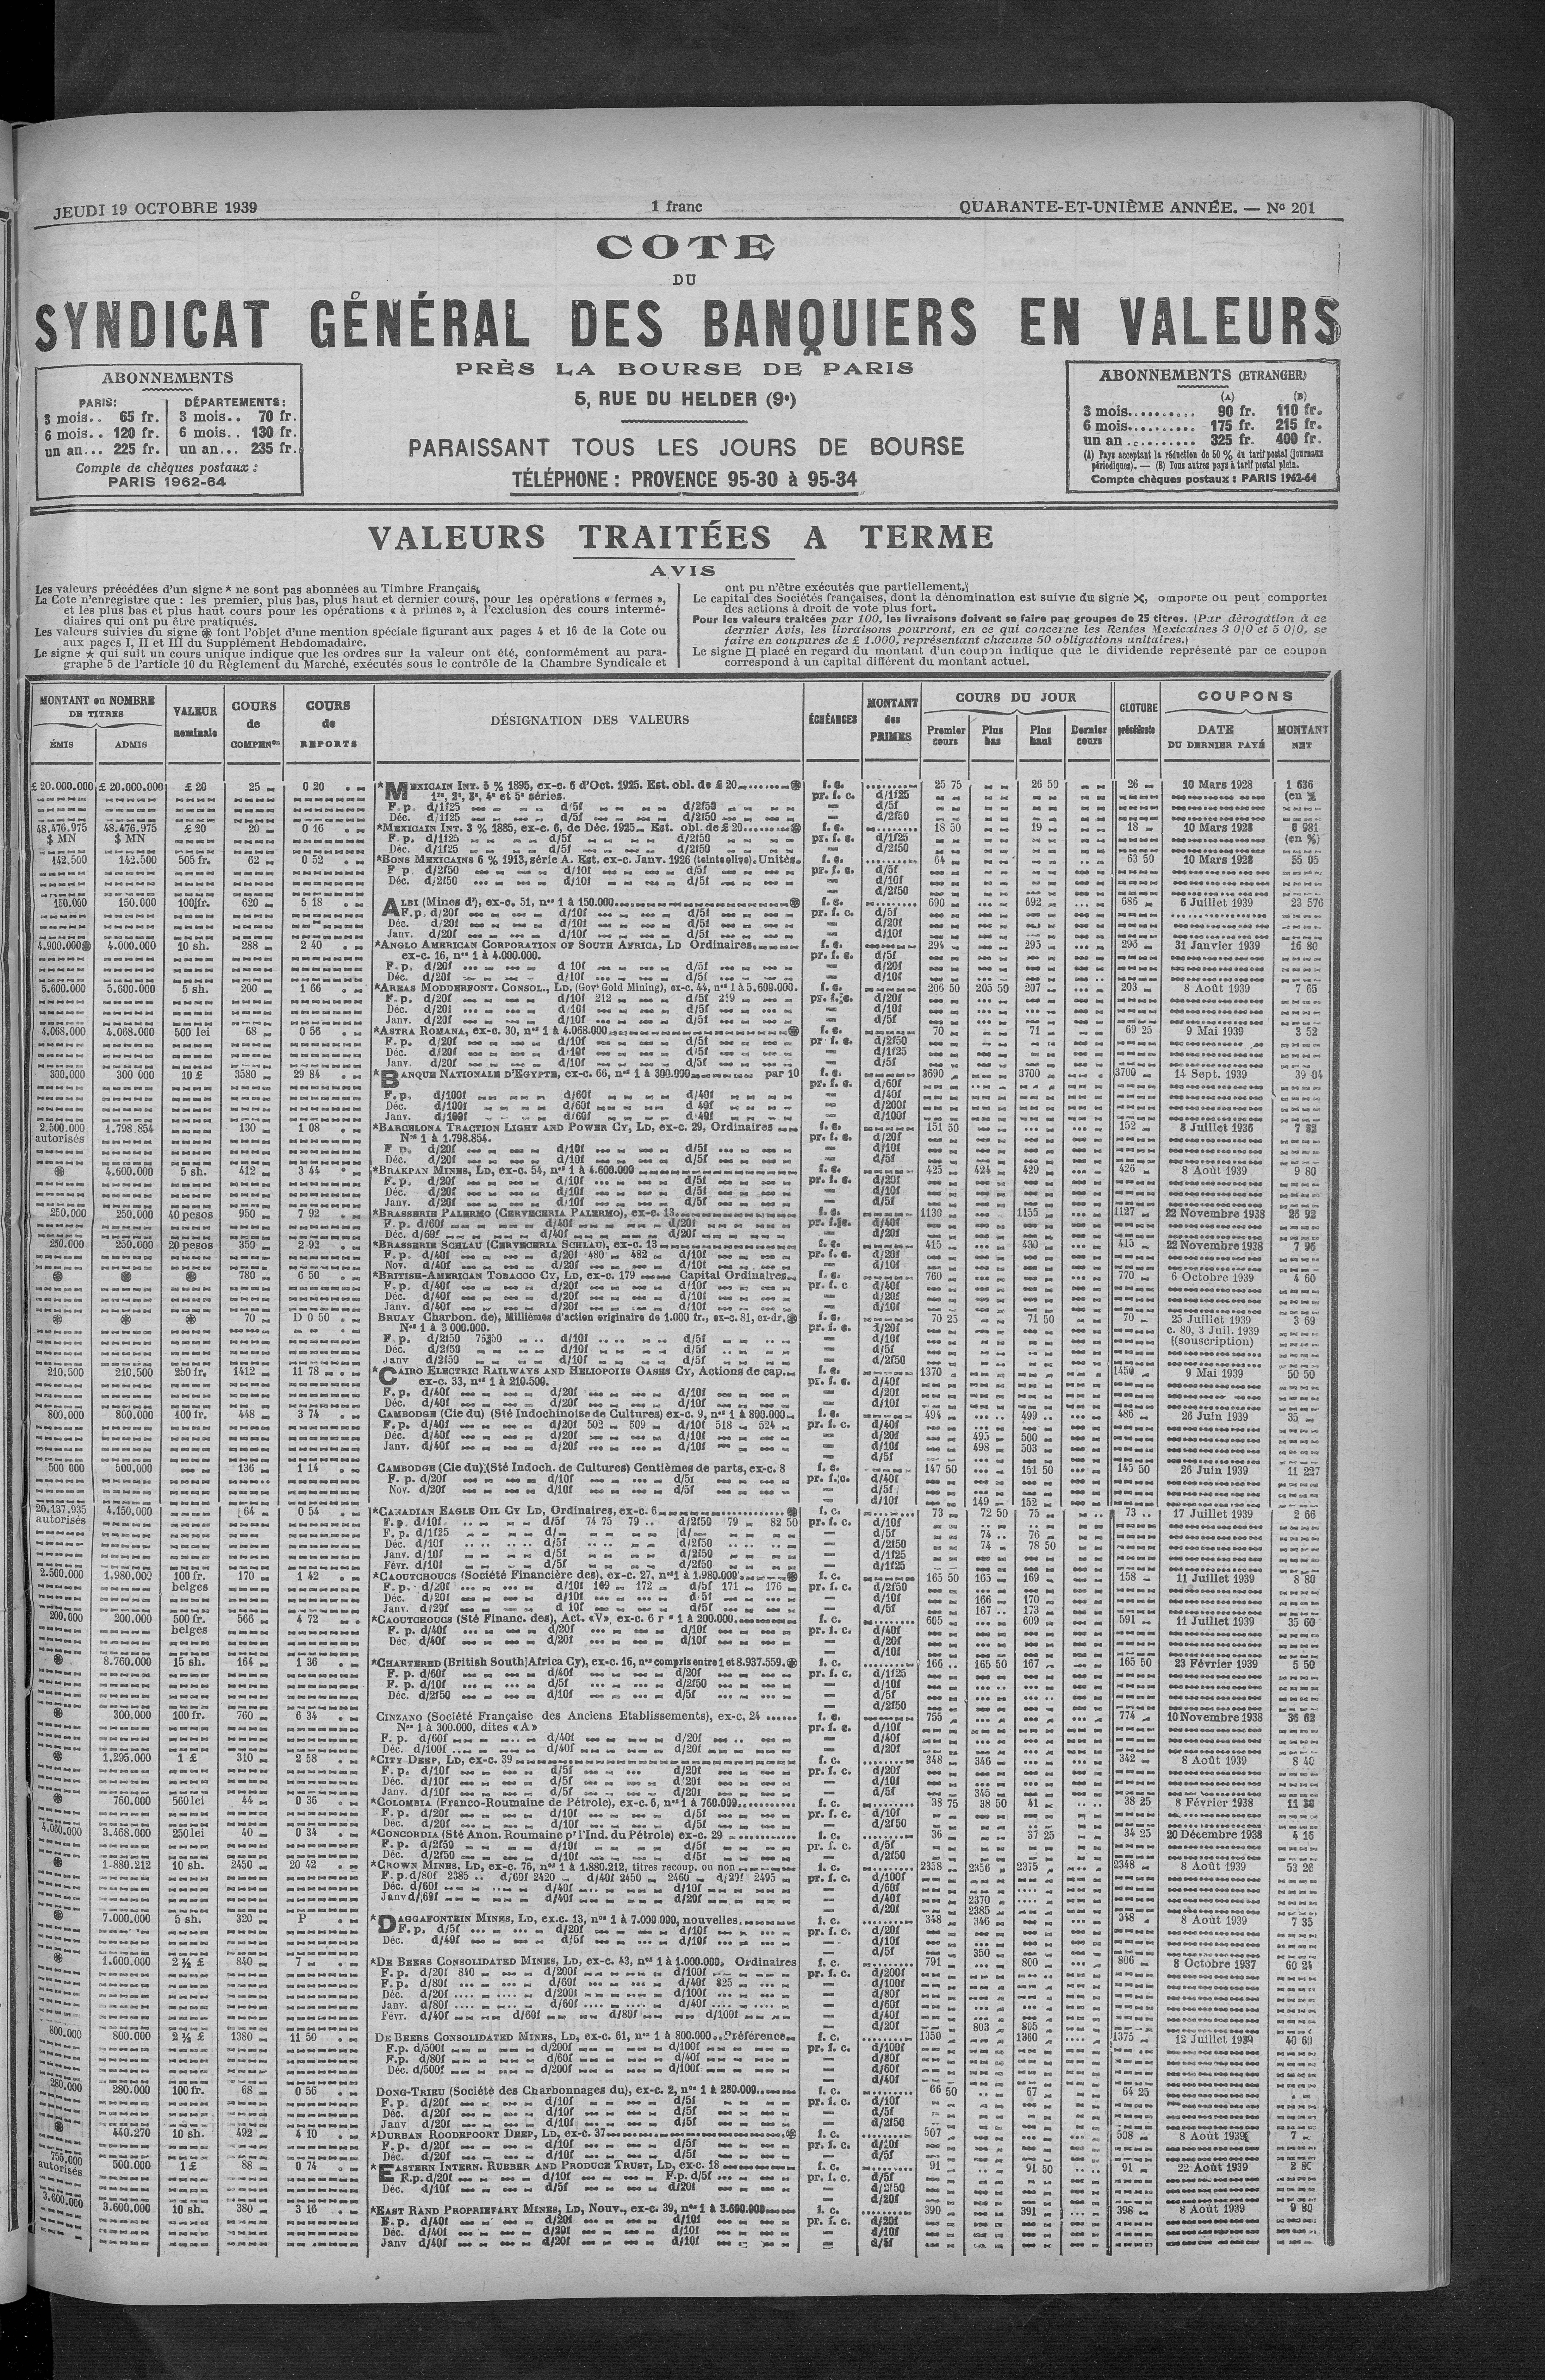 JEUDI 19 OCTOBRE 1939 1 franc QUARANTE-ET-UNIÈME ANNÉE. — Nº 201
COTE
DU
SYNDICAT GÉNÉRAL DES BANQUIERS EN VALEURS
PRÈS LA BOURSE DE PARIS
5, RUE DU HELDER (9e)
PARAISSANT TOUS LES JOURS DE BOURSE
TÉLÉPHONE : PROVENCE 95-30 à 95-34
ABONNEMENTS
PARIS: DÉPARTEMENTS:
3 mois.. 65 fr. 3 mois.. 70 fr.
6 mois.. 120 fr. 6 mois.. 130 fr.
un an... 225 fr. un an... 235 fr.
Compte de chèques postaux :
PARIS 1962-64
ABONNEMENTS (ETRANGER)
(A) (B)
3 mois.......... 90 fr. 110 fr.
6 mois.......... 175 fr. 215 fr.
un an .......... 325 fr. 400 fr.
(A) Pays acceptant la réduction de 50 % du tarif postal (journaux
périodiques). — (B) Tous autres pays à tarif postal plein.
Compte chèques postaux : PARIS 1962-64
VALEURS TRAITÉES A TERME
AVIS
Les valeurs précédées d'un signe * ne sont pas abonnées au Timbre Français.
La Cote n'enregistre que : les premier, plus bas, plus haut et dernier cours, pour les opérations « fermes »,
et les plus bas et plus haut cours pour les opérations « à primes », à l'exclusion des cours intermé-
diaires qui ont pu être pratiqués.
Les valeurs suivies du signe ֍ font l'objet d'une mention spéciale figurant aux pages 4 et 16 de la Cote ou
aux pages I, II et III du Supplément Hebdomadaire.
Le signe ★ qui suit un cours unique indique que les ordres sur la valeur ont été, conformément au para-
graphe 5 de l'article 10 du Règlement du Marché, exécutés sous le contrôle de la Chambre Syndicale et
ont pu n'être exécutés que partiellement.
Le capital des Sociétés françaises, dont la dénomination est suivie du signe ✕, omporte ou peut comporter
des actions à droit de vote plus fort.
Pour les valeurs traitées par 100, les livraisons doivent se faire par groupes de 25 titres. (Par dérogation à ce
dernier Avis, les livraisons pourront, en ce qui concerne les Rentes Mexicaines 3 0/0 et 5 0/0, se
faire en coupures de £ 1.000, représentant chacune 50 obligations unitaires.)
Le signe □ placé en regard du montant d'un coupon indique que le dividende représenté par ce coupon
correspond à un capital différent du montant actuel.
MONTANT ou NOMBRE DE TITRES
ÉMIS ADMIS
VALEUR nominale
COURS de COMPENon
COURS de REPORTS
DÉSIGNATION DES VALEURS
ÉCHÉANCES
MONTANT des PRIMES
COURS DU JOUR
Premier cours Plus bas Plus haut Dernier cours
CLOTURE précédente
COUPONS
DATE DU DERNIER PAYÉ MONTANT NET
£ 20.000.000 £ 20.000.000 £ 20 25 0 20 *MEXICAIN INT. 5 % 1895, ex-c. 6 d'Oct. 1925. Est. obl. de £ 20 f. c. 25 75 26 50 26 10 Mars 1928 1 636
1re, 2e, 3e, 4e et 5e séries. pr. f. c. d/1f25 (en %
F. p. d/1f25 d/5f d/2f50 d/5f
Déc. d/1f25 d/5f d/2f50 d/2f50
48.476.975 48.476.975 £ 20 20 0 16 *MEXICAIN INT. 3 % 1885, ex-c. 6, de Déc. 1925 Est. obl. de £ 20 f. c. 18 50 19 18 10 Mars 1928 0 981
$ MN $ MN F. p. d/1f25 d/5f d/2f50 pr. f. c. d/1f25 (en %)
Déc. d/1f25 d/5f d/2f50 d/2f50
142.500 142.500 505 fr. 62 0 52 *BONS MEXICAINS 6 % 1913, série A. Est. ex-c. Janv. 1926 (teinte olive). Unités. f. c. 64 63 50 10 Mars 1928 55 05
F p. d/2f50 d/10f d/5f pr. f. c. d/5f
Déc. d/2f50 d/10f d/5f d/10f
d/2f50
150.000 150.000 100 fr. 620 5 18 ALBI (Mines d'), ex-c. 51, nos 1 à 150.000 f. c. 690 692 686 6 Juillet 1939 23 576
F. p. d/20f d/10f d/5f pr. f. c. d/5f
Déc. d/20f d/10f d/5f d/20f
Janv. d/20f d/10f d/5f d/10f
4.900.000 4.000.000 10 sh. 288 2 40 *ANGLO AMERICAN CORPORATION OF SOUTH AFRICA, LD Ordinaires f. c. 294 295 296 31 Janvier 1939 16 80
ex-c. 16, nos 1 à 4.000.000. pr. f. c. d/5f
F. p. d/20f d 10f d/5f d/20f
Déc. d/20f d/10f d/5f d/10f
5.600.000 5.600.000 5 sh. 200 1 66 *AREAS MODDERFONT. CONSOL., LD, (Govt Gold Mining), ex-c. 44, nos 1 à 5.600.000. f. c. 206 50 205 50 207 203 8 Août 1939 7 65
F. p. d/20f d/10f 212 d/5f 219 pr. f. c. d/20f
Déc. d/20f d/10f d/5f d/10f
Janv. d/20f d/10f d/5f d/5f
4.068.000 4.068.000 500 lei 68 0 56 *ASTRA ROMANA, ex-c. 30, nos 1 à 4.068.000 f. c. 70 71 69 25 9 Mai 1939 3 52
F. p. d/20f d/10f d/5f pr f. c. d/2f50
Déc. d/20f d/10f d/5f d/1f25
Janv. d/20f d/10f d/5f d/5f
300.000 300 000 10 £ 3580 29 84 *BANQUE NATIONALE D'EGYPTE, ex-c. 66, nos 1 à 300.000 par 10 f. c. 3690 3700 3700 14 Sept. 1939 39 04
pr. f. c. d/60f
F. p. d/100f d/60f d/40f d/40f
Déc. d/100f d/60f d 40f d/200f
Janv d/100f d/60f d/40f d/100f
2.500.000 1.798.854 130 1 08 *BARCELONA TRACTION LIGHT AND POWER CY, LD, ex-c. 29, Ordinaires f. c. 151 50 152 8 Juillet 1936 7 82
autorisés Nos 1 à 1.798.854. pr. f. c. d/20f
F p. d/20f d/10f d/5f d/10f
Déc. d/20f d/10f d/5f d/5f
4.600.000 5 sh. 412 3 44 *BRAKPAN MINES, LD, ex-c. 54, nos 1 à 4.600.000 f. c. 425 424 429 426 8 Août 1939 9 80
F. p. d/20f d/10f d/5f pr. f. c. d/20f
Déc. d/20f d/10f d/5f d/10f
Janv. d/20f d/10f d/5f d/5f
250.000 250.000 40 pesos 950 7 92 *BRASSERIE PALERMO (CERVECERIA PALERMO), ex-c. 13 f. c. 1130 1155 1127 22 Novembre 1938 26 92
F. p. d/60f d/40f d/20f pr. f. c. d/40f
Déc. d/60f d/40f d/20f d/20f
250.000 250.000 20 pesos 350 2 92 *BRASSERIE SCHLAU (CERVECERIA SCHLAU), ex-c. 13 f. c. 415 430 415 22 Novembre 1938 7 96
F. p. d/40f d/20f 480 482 d/10f pr. f. c. d/20f
Nov. d/40f d/20f d/10f d/10f
780 6 50 *BRITISH-AMERICAN TOBACCO CY, LD, ex-c. 179 Capital Ordinaires f. c. 760 770 6 Octobre 1939 4 60
F. p. d/40f d/20f d/10f pr. f. c d/40f
Déc. d/40f d/20f d/10f d/20f
Janv. d/40f d/20f d/10f d/10f
70 D 0 50 BRUAY Charbon. de), Millièmes d'action originaire de 1.000 fr., ex-c. 81, ex-dr. f. c. 70 25 71 50 70 25 Juillet 1939 3 69
Nos 1 à 3 000.000. pr. f. c. d/20f c. 80, 3 Juil. 1939
F. p. d/2f50 d/10f d/5f d/10f (souscription)
Déc. d/2f50 d/10f d/5f d/5f
Janv d/2f50 d/10f d/5f d/2f50
210.500 210.500 250 fr. 1412 11 78 *CAIRO ELECTRIC RAILWAYS AND HELIOPOLIS OASES CY, Actions de cap. f. c. 1370 1450 9 Mai 1939 50 50
ex-c. 33, nos 1 à 210.500. pr. f. c. d/40f
F. p. d/40f d/20f d/10f d/20f
Déc. d/40f d/20f d/10f d/10f
800.000 800.000 100 fr. 448 3 74 CAMBODGE (Cie du) (Sté Indochinoise de Cultures) ex-c. 9, nos 1 à 800.000 f. c. 494 499 486 26 Juin 1939 35
F. p. d/40f d/20f 502 509 d/10f 518 524 pr. f. c. d/40f
Déc. d/40f d/20f d/10f d/20f 495 500
Janv. d/40f d/20f d/10f d/10f 498 503
d/5f
500 000 500.000 136 1 14 CAMBODGE (Cie du) (Sté Indoch. de Cultures) Centièmes de parts, ex-c. 8 f. c. 147 50 151 50 145 50 26 Juin 1939 11 227
F. p. d/20f d/10f d/5f pr. f. c. d/40f
Nov. d/20f d/10f d/5f d/5f
d/10f 149 152
20.137.935 4.150.000 64 0 54 *CANADIAN EAGLE OIL CY LD, Ordinaires, ex-c. 6 f. c. 73 72 50 75 73 17 Juillet 1939 2 66
autorisés F. p. d/10f d/5f 74 75 79 d/2f50 79 82 50 pr. f. c. d/10f
F. p. d/1f25 d/ d/ d/5f 74 76
Déc. d/10f d/5f d/2f50 d/2f50 74 78 50
Janv. d/10f d/5f d/2f50 d/1f25
Févr. d/10f d/5f d/2f50 d/1f25
2.500.000 1.980.000 100 fr. 170 1 42 *CAOUTCHOUCS (Société Financière des), ex-c. 27, nos 1 à 1.980.000 f. c. 165 50 165 169 158 11 Juillet 1939 8 80
belges F. p. d/20f d/10f 169 172 d/5f 171 176 pr. f. c. d/2f50
Déc. d/20f d/10f d 5f d/10f 166 170
Janv. d/20f d 10f d/5f d/5f 167 173
200.000 200.000 500 fr. 566 4 72 *CAOUTCHOUCS (Sté Financ. des), Act. «V», ex-c. 6 1 à 200.000 f. c. 605 609 591 11 Juillet 1939 35 60
belges F. p. d/40f d/20f d/10f pr. f. c. d/40f
Déc. d/40f d/20f d/10f d/20f
d/10f
8.760.000 15 sh. 164 1 36 *CHARTERED (British South Africa Cy), ex-c. 16, nos compris entre 1 et 8.937.559. f. c. 166 165 50 167 165 50 23 Février 1939 5 50
F. p. d/60f d/40f d/20f pr. f. c. d/1f25
F. p. d/10f d/5f d/2f50 d/10f
Déc. d/2f50 d/10f d/5f d/5f
d/2f50
300.000 100 fr. 760 6 34 CINZANO (Société Française des Anciens Etablissements), ex-c. 24 f. c. 755 774 10 Novembre 1938 36 62
Nos 1 à 300.000, dites «A» pr. f. c. d/10f
F. p. d/60f d/40f d/20f d/40f
Déc. d/100f d/40f d/20f d/20f
1.295.000 1 £ 310 2 58 *CITY DEEP, LD, ex-c. 39 f. c. 348 346 342 8 Août 1939 8 40
F. p. d/10f d/5f d/20f pr. f. c. d/20f
Déc. d/10f d/5f d/20f d/10f
Janv. d/10f d/5f d/20f d/5f 345
760.000 560 lei 44 0 36 *COLOMBIA (Franco-Roumaine de Pétrole), ex-c. 6, nos 1 à 760.000 f. c. 38 75 38 50 41 38 25 8 Février 1938 11
F. p. d/20f d/10f d/5f pr. f. c. d/10f
Déc. d/20f d/10f d/5f d/2f50
4.060.000 3.468.000 250 lei 40 0 34 *CONCORDIA (Sté Anon. Roumaine pr l'Ind. du Pétrole) ex-c. 29 f. c. 36 37 25 34 25 20 Décembre 1938 4 16
F. p. d/2f50 d/10f d/5f pr. f. c. d/5f
Déc. d/2f50 d/10f d/5f d/2f50
1.880.212 10 sh. 2450 20 42 *CROWN MINES, LD, ex-c. 76, nos 1 à 1.880.212, titres recoup. ou non f. c. 2358 2356 2375 2348 8 Août 1939 53 26
F. p. d/80f 2385 d/60f 2420 d/40f 2450 2460 d/20f 2495 pr. f. c. d/100f
Déc. d/60f d/40f d/10f d/60f
Janv d/60f d/40f d/20f d/40f 2370
d/20f 2385
7.000.000 5 sh. 320 P *DAGGAFONTEIN MINES, LD, ex.c. 13, nos 1 à 7.000.000, nouvelles. f. c. 348 346 348 8 Août 1939 7 35
F. p. d/5f d/20f d/10f pr. f. c. d/20f
Déc. d/40f d/5f d/10f d/10f
d/5f 350
1.000.000 2 ½ £ 840 7 *DE BEERS CONSOLIDATED MINES, LD, ex-c. 43, nos 1 à 1.000.000, Ordinaires f. c. 791 800 806 8 Octobre 1937 60 24
F. p. d/20f 840 d/200f d/100f pr. f. c. d/200f
F. p. d/80f d/60f d/40f 825 d/100f
Déc. d/20f d/200f d/100f d/80f
Janv. d/80f d/60f d/40f d/60f
Févr. d/40f d/60f d/80f d/100f d/40f
d/20f 803 805
800.000 800.000 2 ½ £ 1380 11 50 DE BEERS CONSOLIDATED MINES, LD, ex-c. 61, nos 1 à 800.000 Préférence f. c. 1350 1360 1375 12 Juillet 1939 40 60
F.p. d/500f d/200f d/100f pr. f. c. d/100f
F.p. d/80f d/60f d/40f d/80f
Déc. d/500f d/200f d/100f d/60f
d/40f
280.000 280.000 100 fr. 68 0 56 DONG-TRIEU (Société des Charbonnages du), ex-c. 2, nos 1 à 280.000 f. c. 66 50 67 64 25
F. p. d/20f d/10f d/5f pr. f. c. d/10f
Déc. d/20f d/10f d/5f d/5f
Janv d/20f d/10f d/5f d/2f50
440.270 10 sh. 492 4 10 *DURBAN ROODEPOORT DEEP, LD, ex-c. 37 f. c. 507 508 8 Août 1939 7
F. p. d/20f d/10f d/5f pr. f. c. d/10f
Déc. d/20f d/10f d/5f d/5f
755.000 500.000 1 £ 88 0 74 *EASTERN INTERN. RUBBER AND PRODUCE TRUST, LD, ex-c. 18 f. c. 91 91 50 91 22 Août 1939
autorisés F.p. d/20f d/10f F.p. d/5f pr. f. c. d/5f
Déc. d/10f d/5f d/20f d/2f50
d/20f
3.600.000 3.600.000 10 sh. 380 3 16 *EAST RAND PROPRIETARY MINES, LD, Nouv., ex-c. 39, nos 1 à 3.600.000 f. c. 390 391 398 8 Août 1939 9 80
F. p. d/40f d/20f d/10f pr. f. c. d/20f
Déc. d/40f d/20f d/10f d/10f
Janv d/40f d/20f d/10f d/5f